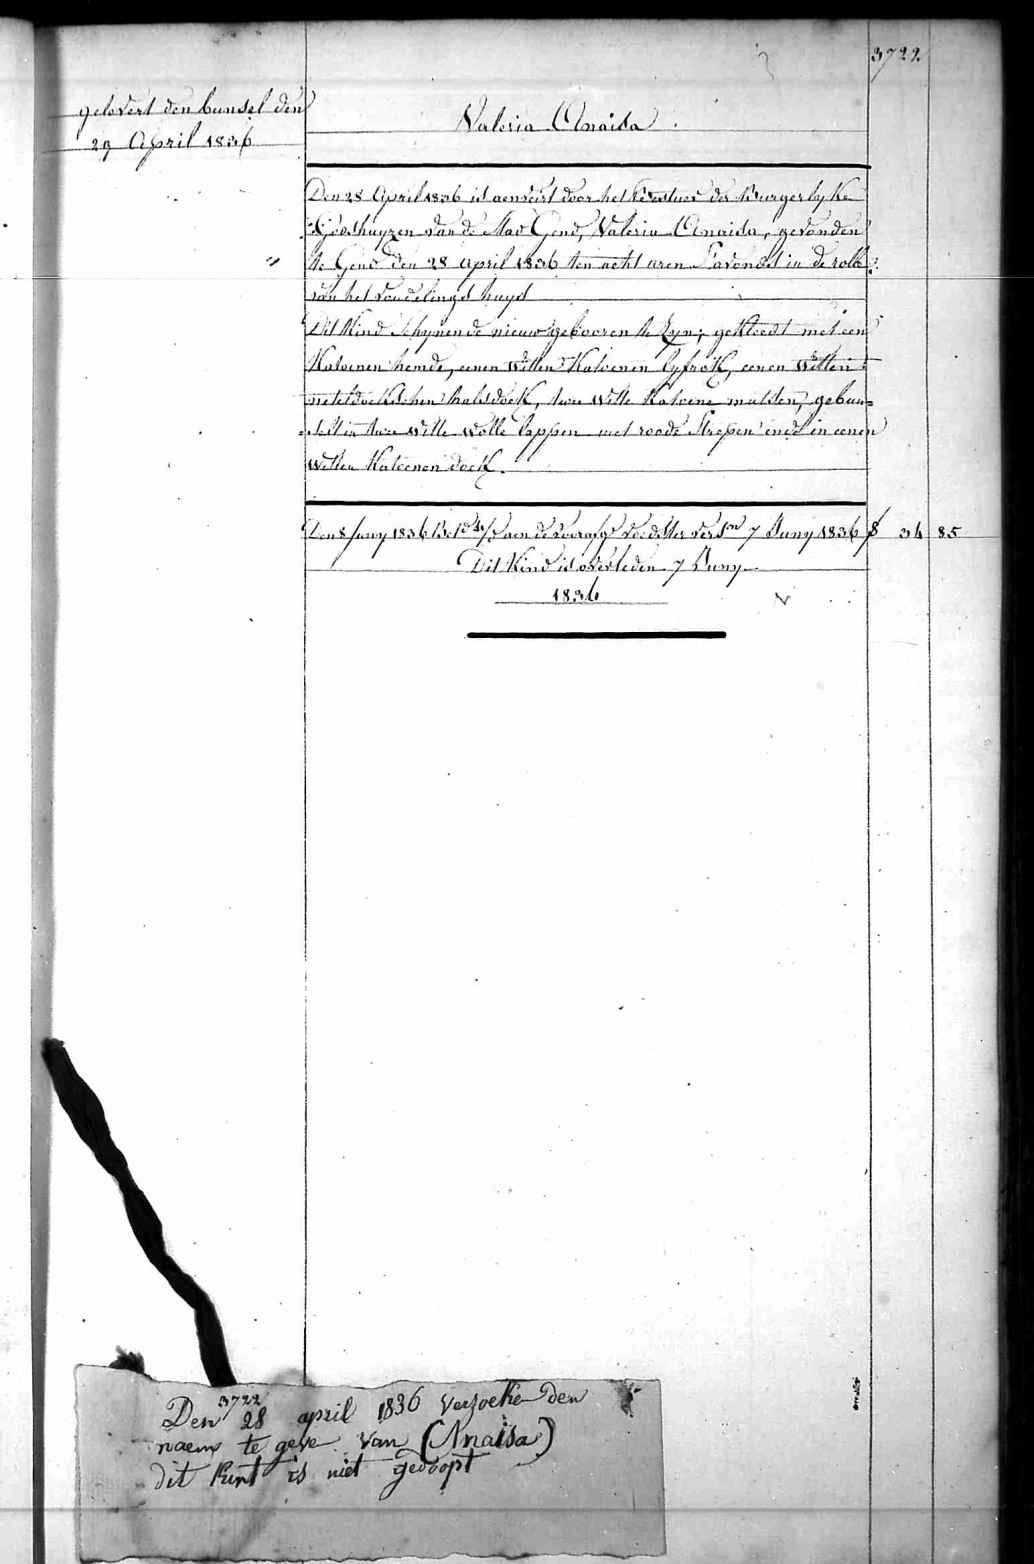 3722
gelevert den bunsel den
29 April 1836
Valeria Anaida.
Den 28 April 1836 is aenveirt door het bestuer der burgerlyke
Godshuyzen van de Stad Gend, Valeria Anaida, gevonden
te Gend den 28 april 1836 ten acht uren s'avonds in de rolle
van het vondelings huys
Dit Kind schynende nieuw gebooren te zyn; gekleedt met een
Katoenen hemde, eenen witten Katoenen lyfrok, eenen witten
neteldoekschen halsdoek, twee witte Katoene mutsen, gebun=
selt in twee witte wolle lappen met roode strepen ende in eenen
witten Katoenen doek.
Den 8 Juny 1836 aen de voedster 7 Juny 1836 34 85
Dit Kind is overleden 7 Juny
1836
3722
Den 28 april 1836 verzoeke den
naem te geve van (Anaisa)
dit kint is niet gedoopt